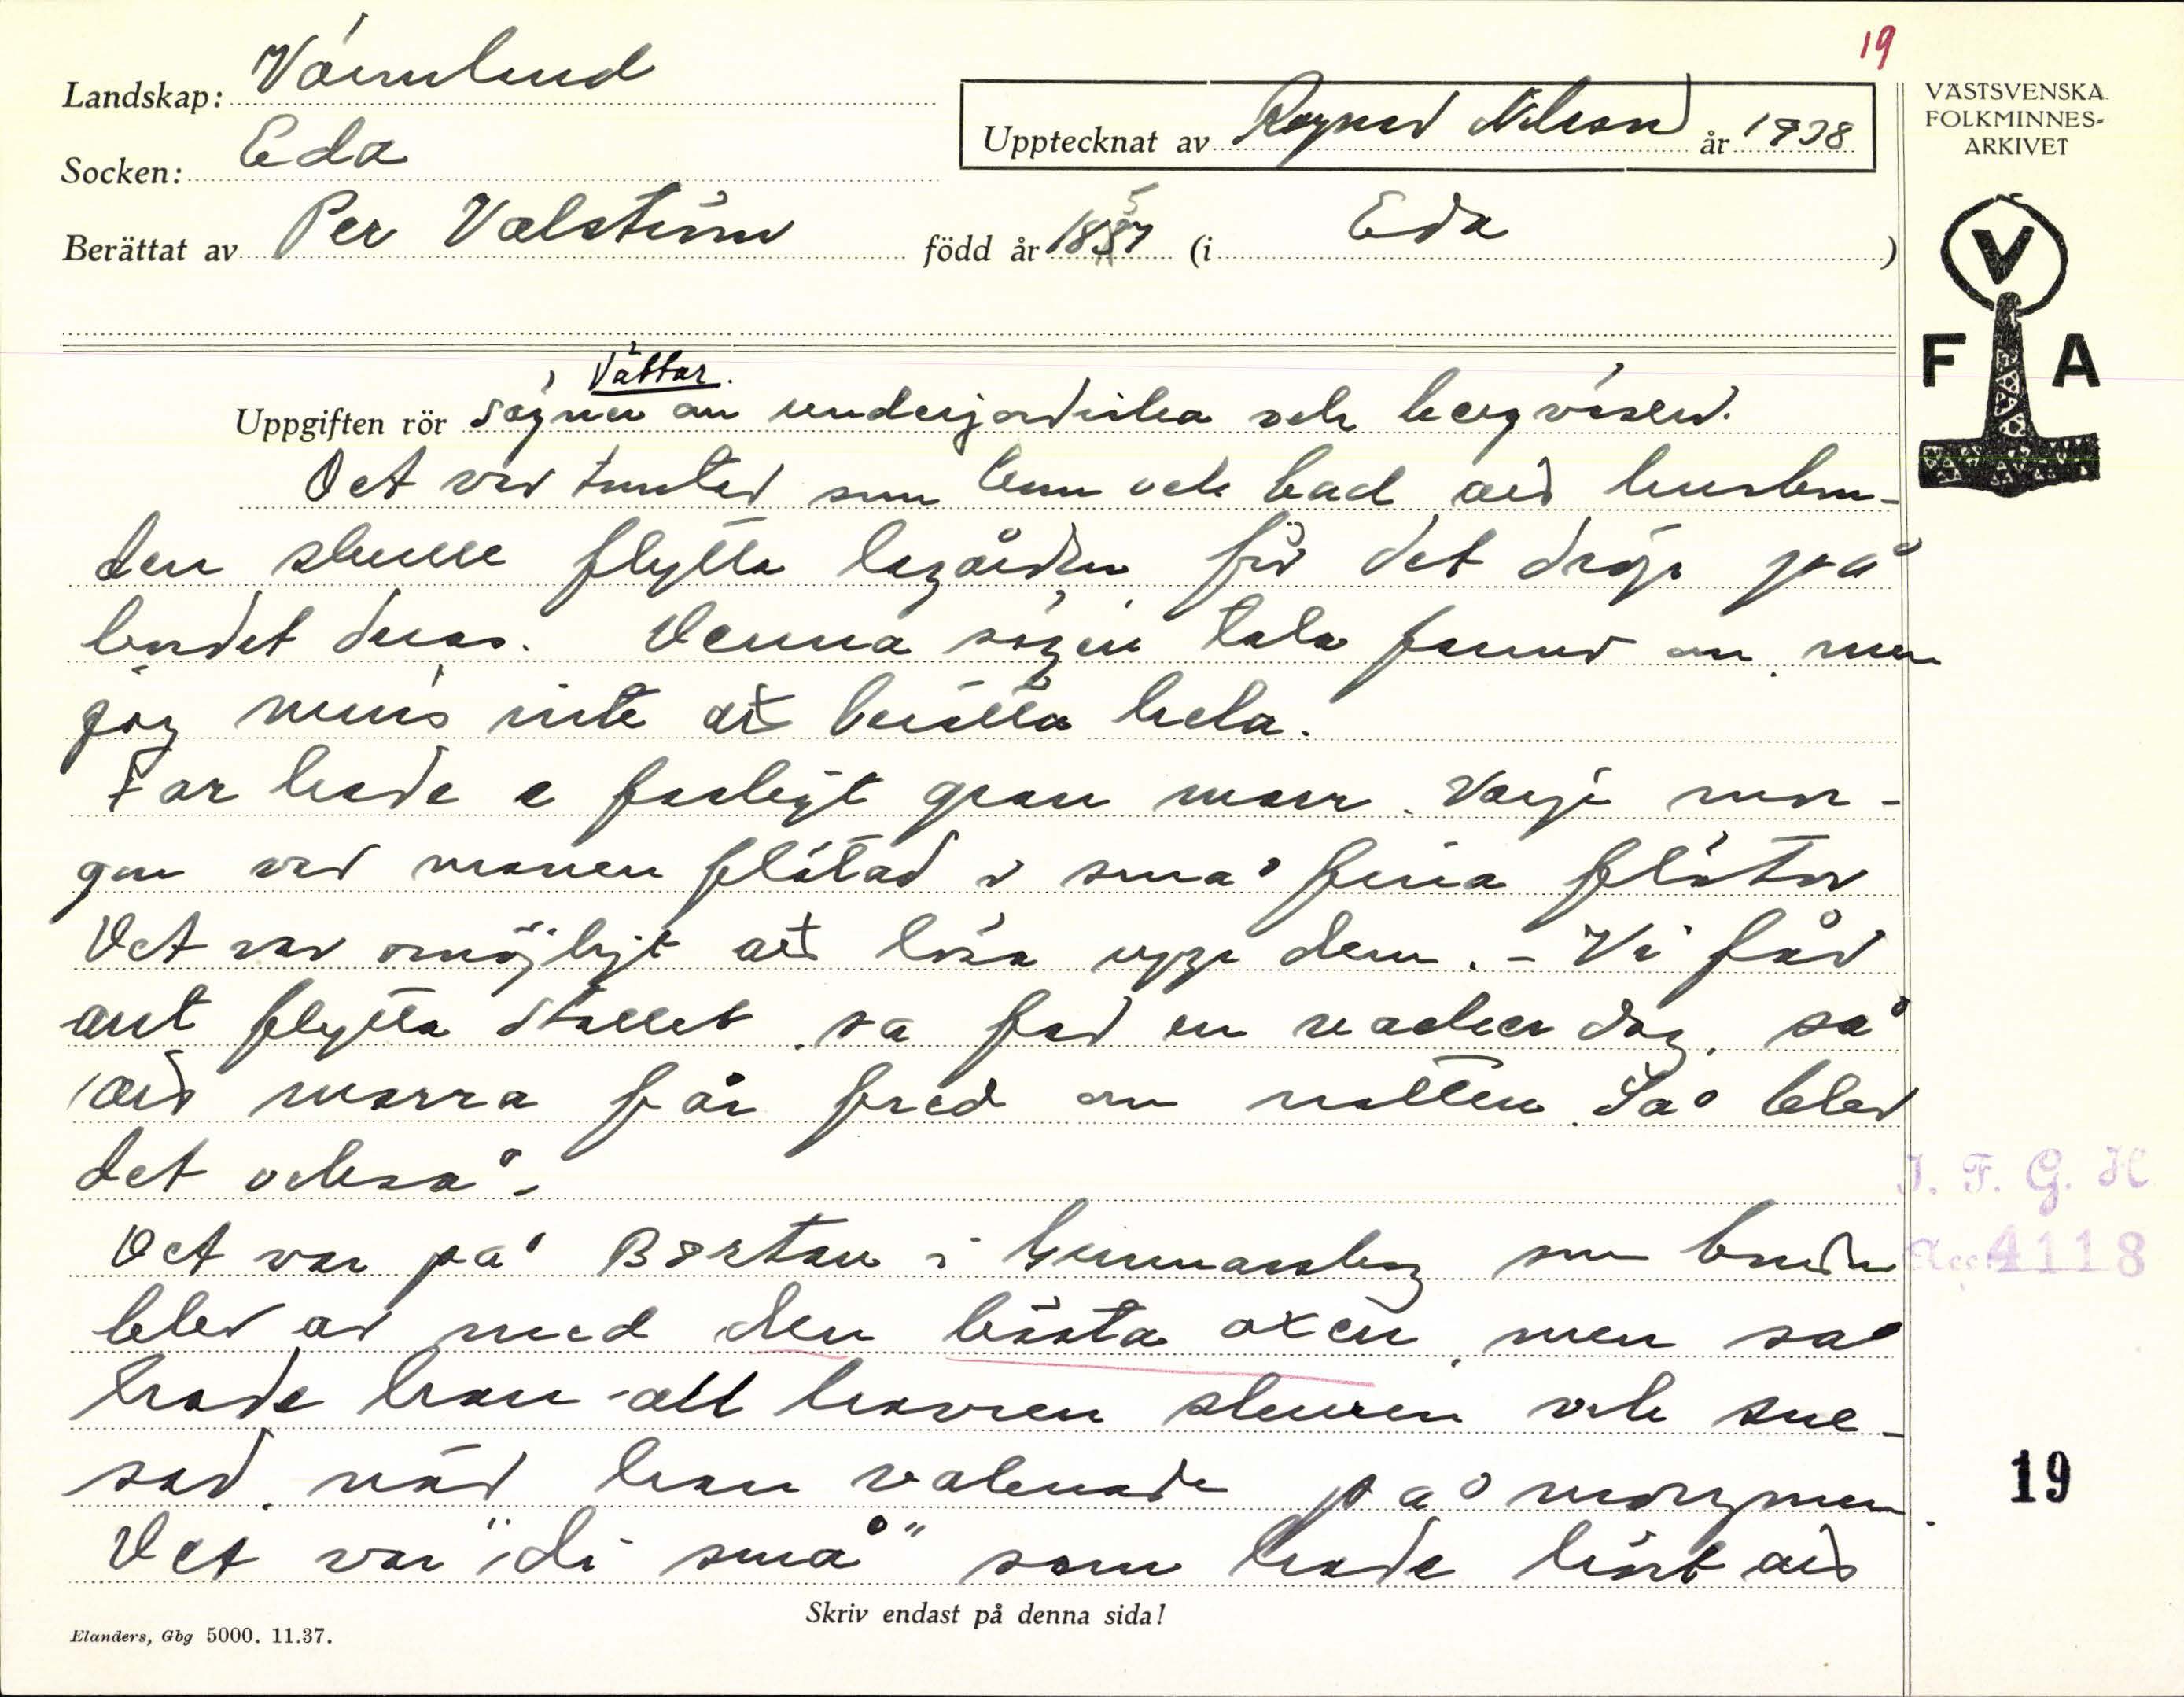 19
Landskap: Värmland
Upptecknat av Ragnar Nilsson år 1938
VÄSTSVENSKA
FOLKMINNES-
ARKIVET
Socken: Eda
Berättat av Per Valström född år 1857 (i Eda )
V
F A
Vättar.
Uppgiften rör sägner om underjordiska och bergväsen.
Det var tomten som kom och bad att husbon-
den skulle flytta lagården för det dröp på
bordet deras. Denna sägen tala farmor om, men
jag minns inte att berätta hela.
Far hade e fasligt grann märr. Varje mor-
gon var manen flätad i små fina flätor
Det var omöjligt att lösa upp dem. - Vi får
ant flytta stallet, sa far en vacker dag, så
att marra får fred om natten. Så blev
det också.
Det var på Börtan i Gunnarsberg som bonden
blev av med den bästa oxen, men så
hade han all havren skuren och sne-
sad, när han vaknade på morgonen.
Det var "di små" som hade hört att
J. F. G. H
Acc 4118
19
Skriv endast på denna sida!
Elanders, Gbg 5000. 11.37.